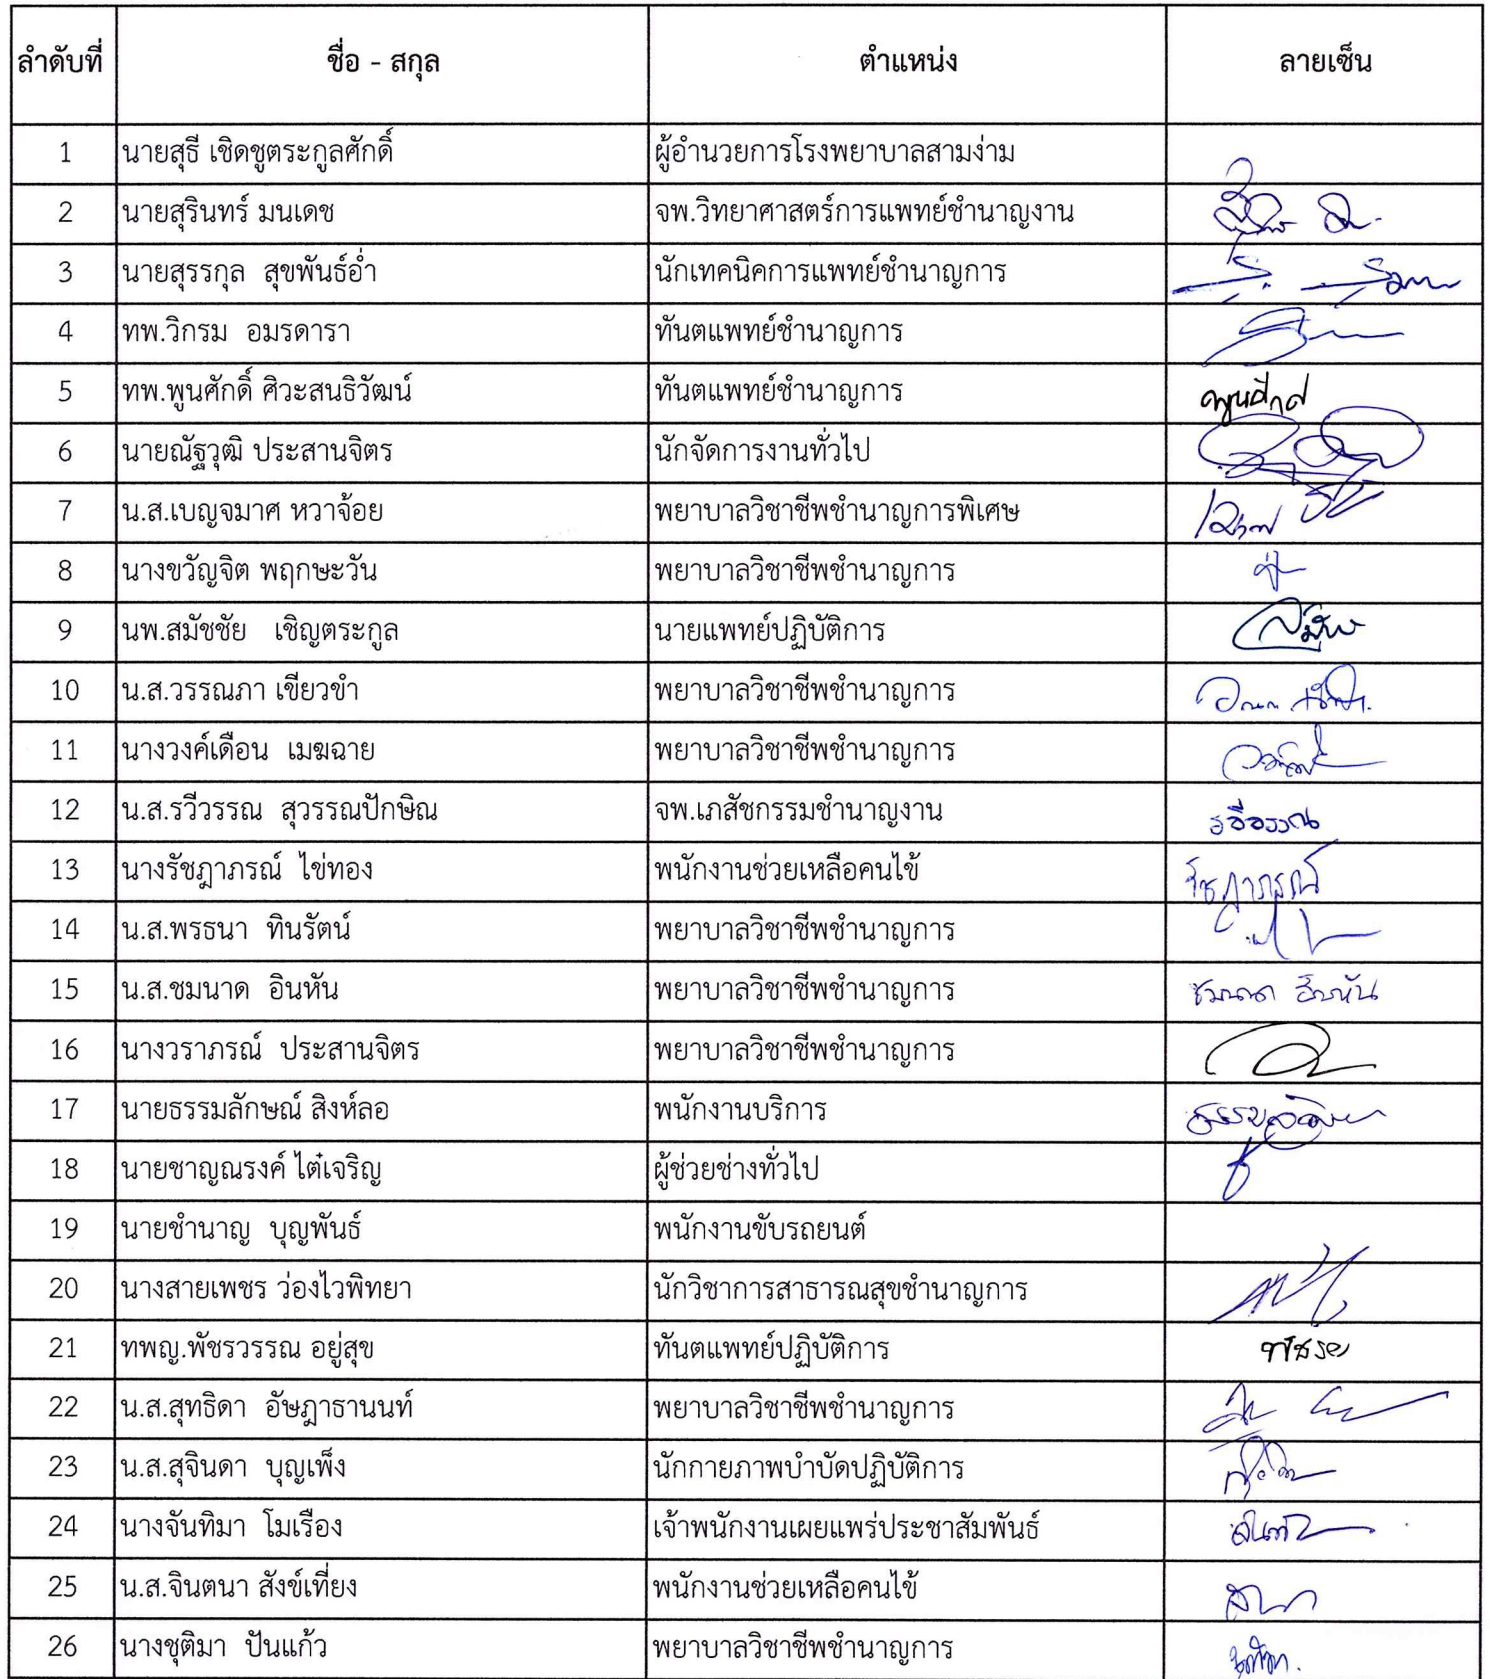 ลำดับที่ ชื่อ - สกุล ตำแหน่ง ลายเซ็น
1 นายสุธี เชิดชูตระกูลศักดิ์ ผู้อำนวยการโรงพยาบาลสามง่าม
2 นายสุรินทร์ มนเดช จพ.วิทยาศาสตร์การแพทย์ชำนาญงาน
3 นายสุรรกุล สุขพันธ์อ่ำ นักเทคนิคการแพทย์ชำนาญการ
4 ทพ.วิกรม อมรดารา ทันตแพทย์ชำนาญการ
5 ทพ.พูนศักดิ์ ศิวะสนธิวัฒน์ ทันตแพทย์ชำนาญการ
6 นายณัฐวุฒิ ประสานจิตร นักจัดการงานทั่วไป
7 น.ส.เบญจมาศ หวาจ้อย พยาบาลวิชาชีพชำนาญการพิเศษ
8 นางขวัญจิต พฤกษะวัน พยาบาลวิชาชีพชำนาญการ
9 นพ.สมัชชัย เชิญตระกูล นายแพทย์ปฏิบัติการ
10 น.ส.วรรณภา เขียวขำ พยาบาลวิชาชีพชำนาญการ
11 นางวงค์เดือน เมฆฉาย พยาบาลวิชาชีพชำนาญการ
12 น.ส.รวีวรรณ สุวรรณปักษิณ จพ.เภสัชกรรมชำนาญงาน รวีวรรณ
13 นางรัชฎาภรณ์ ไข่ทอง พนักงานช่วยเหลือคนไข้ รัชฎาภรณ์
14 น.ส.พรธนา ทินรัตน์ พยาบาลวิชาชีพชำนาญการ
15 น.ส.ชมนาด อินหัน พยาบาลวิชาชีพชำนาญการ ชมนาด อินหัน
16 นางวราภรณ์ ประสานจิตร พยาบาลวิชาชีพชำนาญการ
17 นายธรรมลักษณ์ สิงห์ลอ พนักงานบริการ
18 นายชาญณรงค์ ไต่เจริญ ผู้ช่วยช่างทั่วไป
19 นายชำนาญ บุญพันธ์ พนักงานขับรถยนต์
20 นางสายเพชร ว่องไวพิทยา นักวิชาการสาธารณสุขชำนาญการ
21 ทพญ.พัชรวรรณ อยู่สุข ทันตแพทย์ปฏิบัติการ
22 น.ส.สุทธิดา อัษฎาธานนท์ พยาบาลวิชาชีพชำนาญการ
23 น.ส.สุจินดา บุญเพ็ง นักกายภาพบำบัดปฏิบัติการ
24 นางจันทิมา โมเรือง เจ้าพนักงานเผยแพร่ประชาสัมพันธ์
25 น.ส.จินตนา สังข์เที่ยง พนักงานช่วยเหลือคนไข้
26 นางชุติมา ปันแก้ว พยาบาลวิชาชีพชำนาญการ